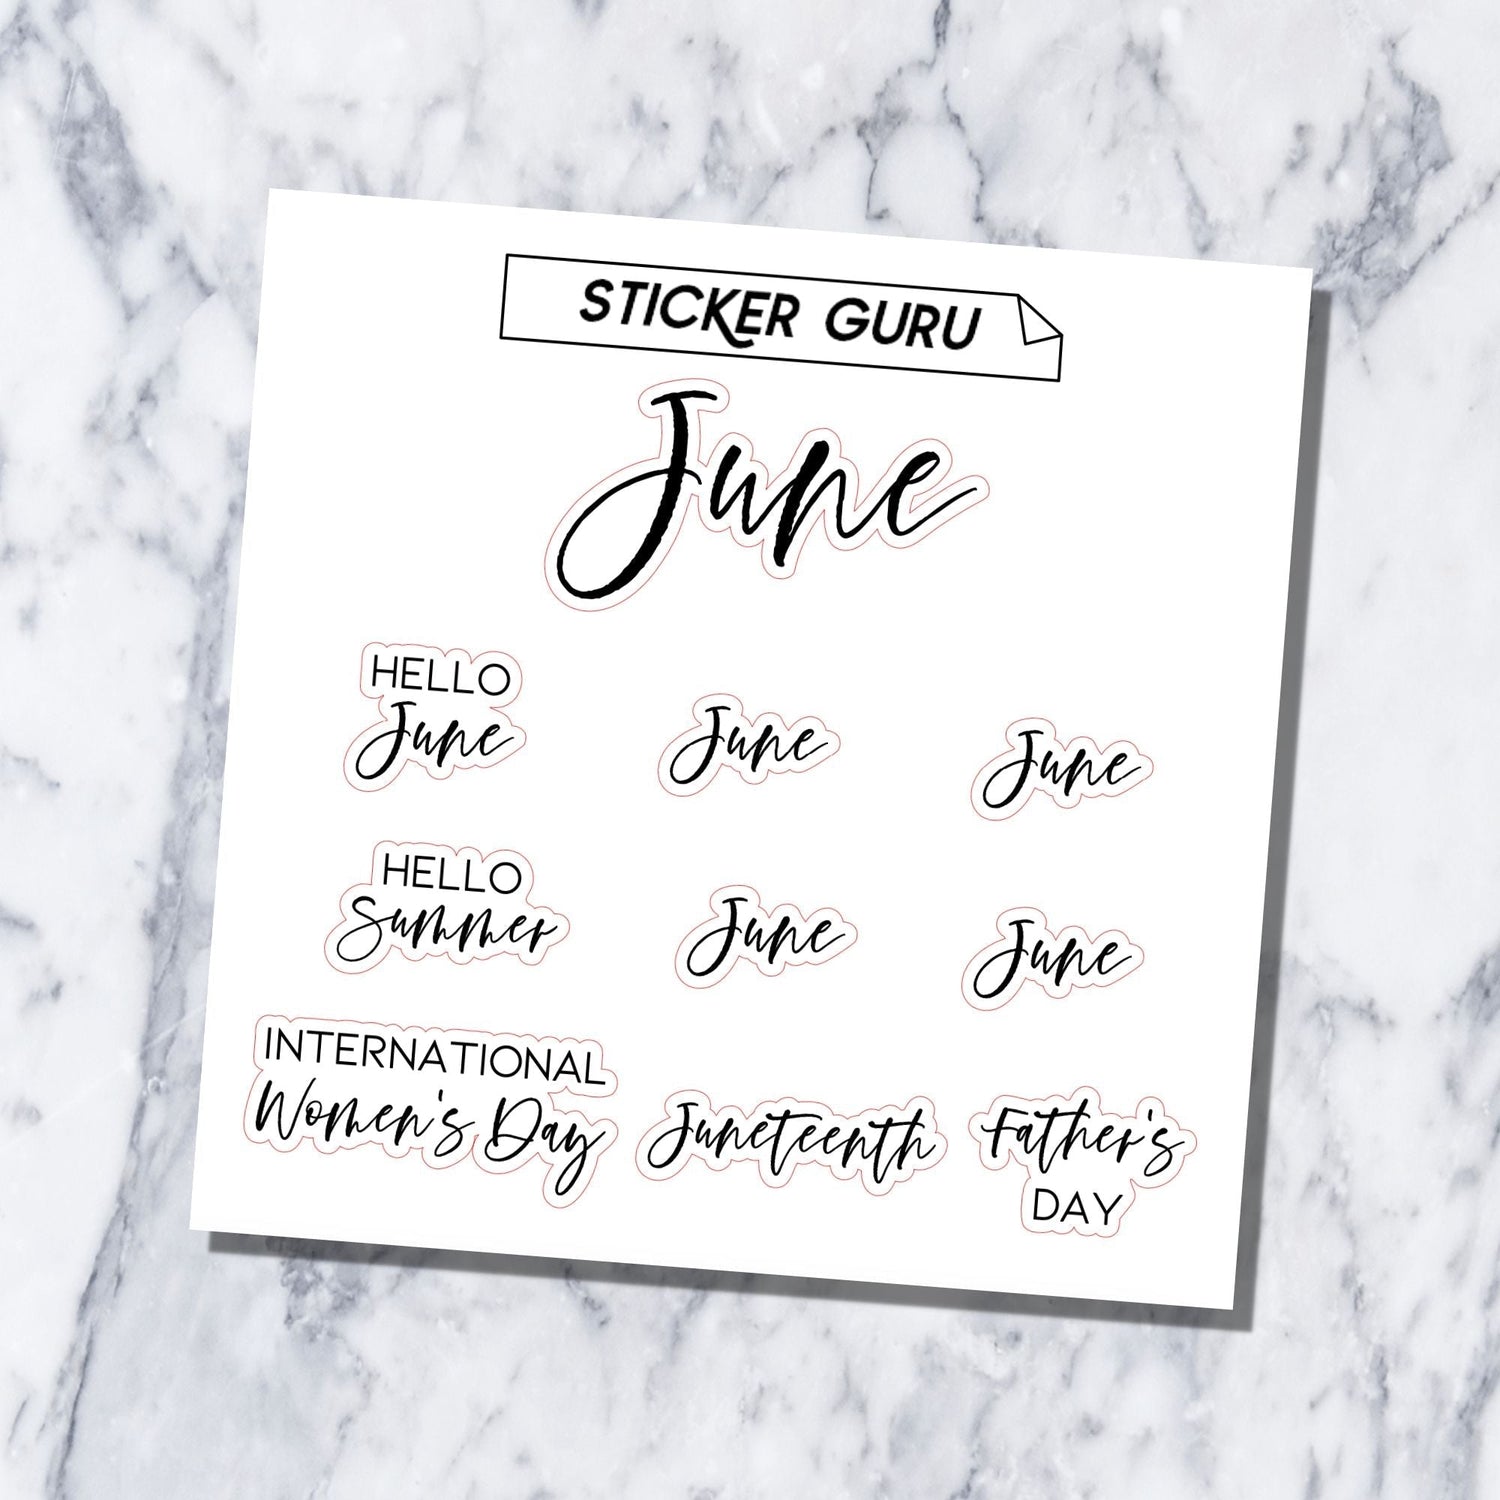 STICKER GURU
June
HELLO
June
June
June
HELLO
Summer
June
June
INTERNATIONAL
Women's Day
Juneteenth
Father's
DAY